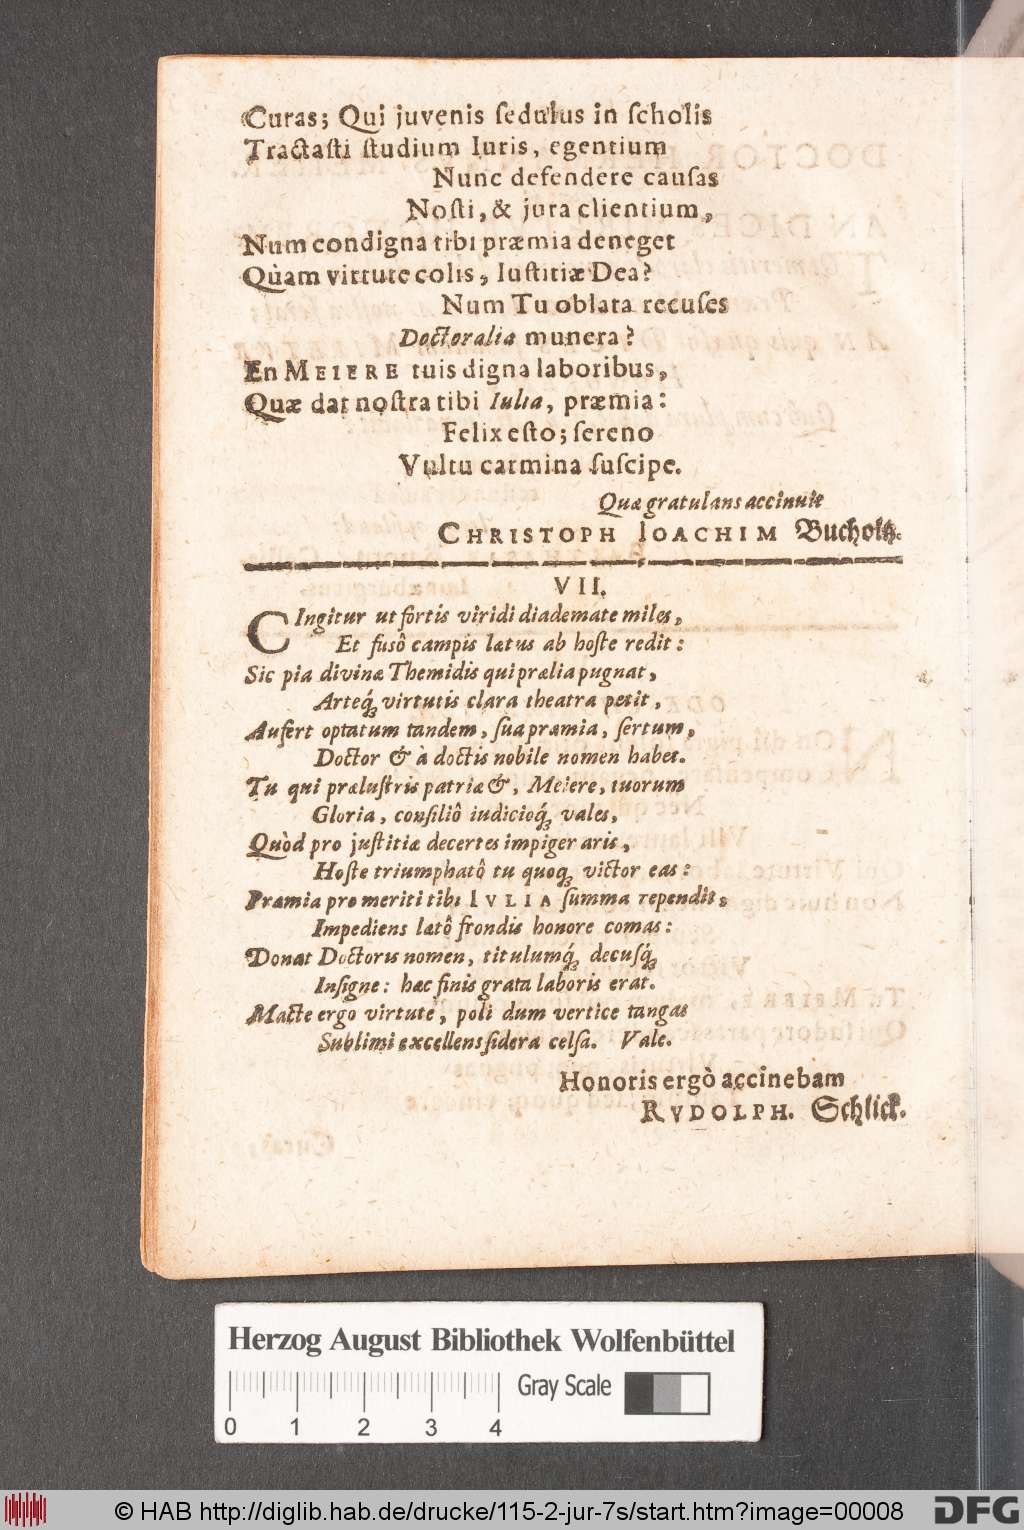 Curas; Qui juvenis ſedulus in ſcholis
Tractaſti ſtudium Iuris, egentium
Nunc defendere cauſas
Noſti, & jura clientium,
Num condigna tibi præmia deneget
Quàm virtute colis, Iuſtitiæ Dea?
Num Tu oblata recuſes
Doctoralia munera?
En MEIERE tuis digna laboribus,
Quæ dat noſtra tibi Iulia, præmia:
Felix eſto; ſereno
Vultu carmina ſuſcipe.
Quæ gratulans accinuit
CHRISTOPH IOACHIM Bucholtz.
VII.
CIngitur ut fortis viridi diademate miles,
Et fusô campis lætus ab hoſte redit:
Sic pia divinæ Themidis qui prælia pugnat,
Arteq́; virtutis clara theatra petit,
Aufert optatum tandem, ſua præmia, ſertum,
Doctor & à doctis nobile nomen habet.
Tu qui præluſtris patriæ &, Meiere, tuorum
Gloria, conſiliô iudicioq́; vales,
Quòd pro juſtitiæ decertes impiger aris,
Hoſte triumphatô tu quoq; victor eas:
Præmia pro meriti tibi IVLIA ſumma rependit,
Impediens latô frondis honore comas:
Donat Doctoris nomen, titulumq́; decuſq́;
Inſigne: hæc finis grata laboris erat.
Macte ergo virtute, poli dum vertice tangas
Sublimi excellens ſidera celſa. Vale.
Honoris ergò accinebam
RVDOLPH. Schlick.
Herzog August Bibliothek Wolfenbüttel
Gray Scale
0 1 2 3 4
© HAB http://diglib.hab.de/drucke/115-2-jur-7s/start.htm?image=00008
DFG